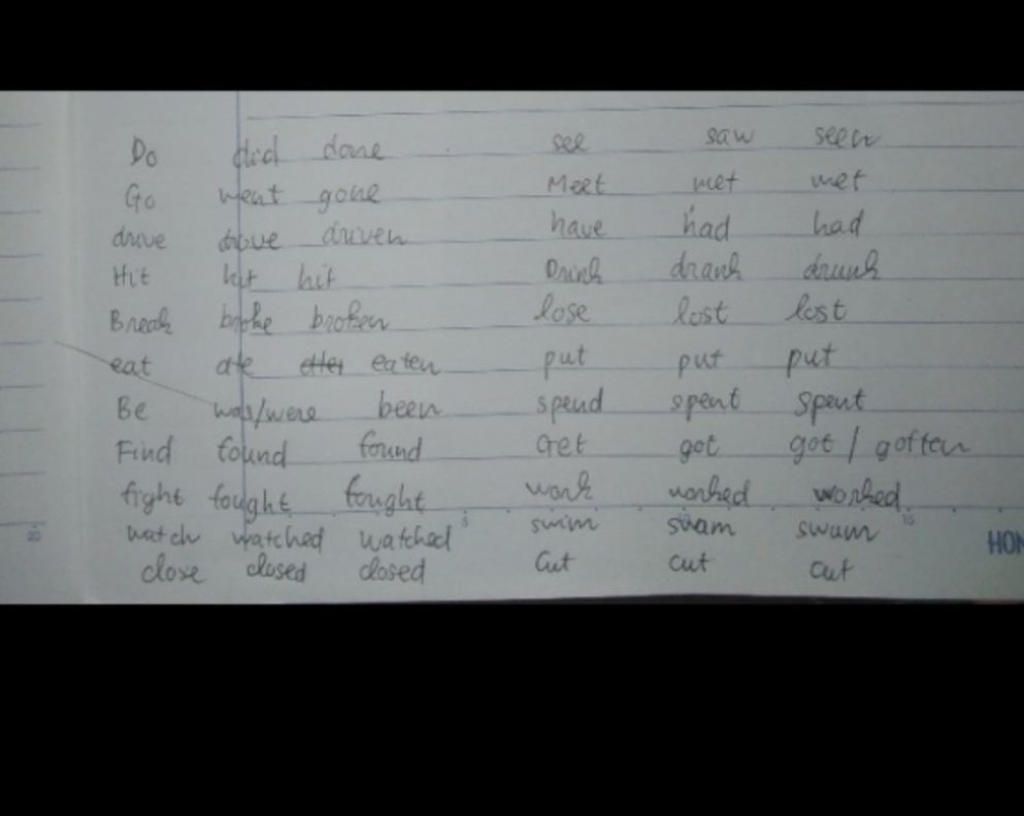 Do did done see saw seen
Go went gone Meet met met
drive drove driven have had had
Hit hit hit Drink drank drunk
Break broke broken lose lost lost
eat ate eaten put put put
Be was/were been spend spent spent
Find found found Get got got / gotten
fight fought fought work worked worked
5 15
20 HON
watch watched watched swim swam swum
close closed closed cut cut cut